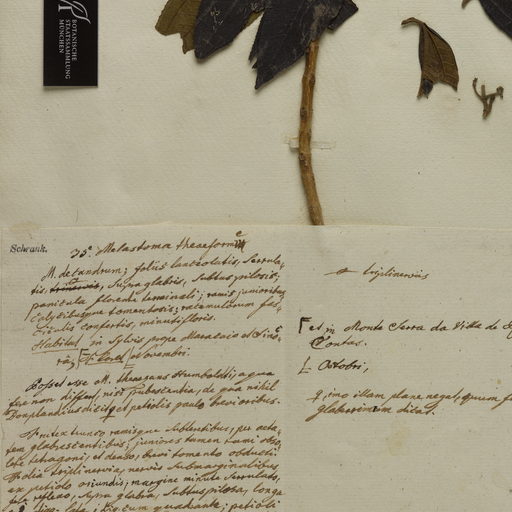 BOTANISCHE
STAATSSAMMLUNG
MÜNCHEN
Schrank.
35. Melastoma theaeformis
M. decandrum; foliis lanceolatis, serrula-
tis, trinervis, supra glabris, subtus pilosis;
panicula florente terminali; ramis junioribus
calycibusque tomentosis; racemulorum fas-
ciculis confertis, minutifloris.
Habitat in sylvis prope Maracaio et
Novembri.
Posset esse M. theezans Humboldti, a quo
fere non differt, nisi pubescentia, de qua nihil
Bonplandius dicit, et petiolis paulo brevioribus.
Frutex trunco ramisque subteretibus, per aeta-
tem glabrescentibus; juniores tamen rami obso-
lete tetragoni, et denso, brevi tomento obducti
Folia triplinervia, nervis submarginalibus,
ex petiolo oriundis; margine minute serrulato,
reflexo, supra glabra, subtus pilosa, longa
lata; petioli
triplinervis
et in Monte Serra da Ville de
Contas.
Octobri,
q. imo illam plane negat, quum
glaberrimum dicat.